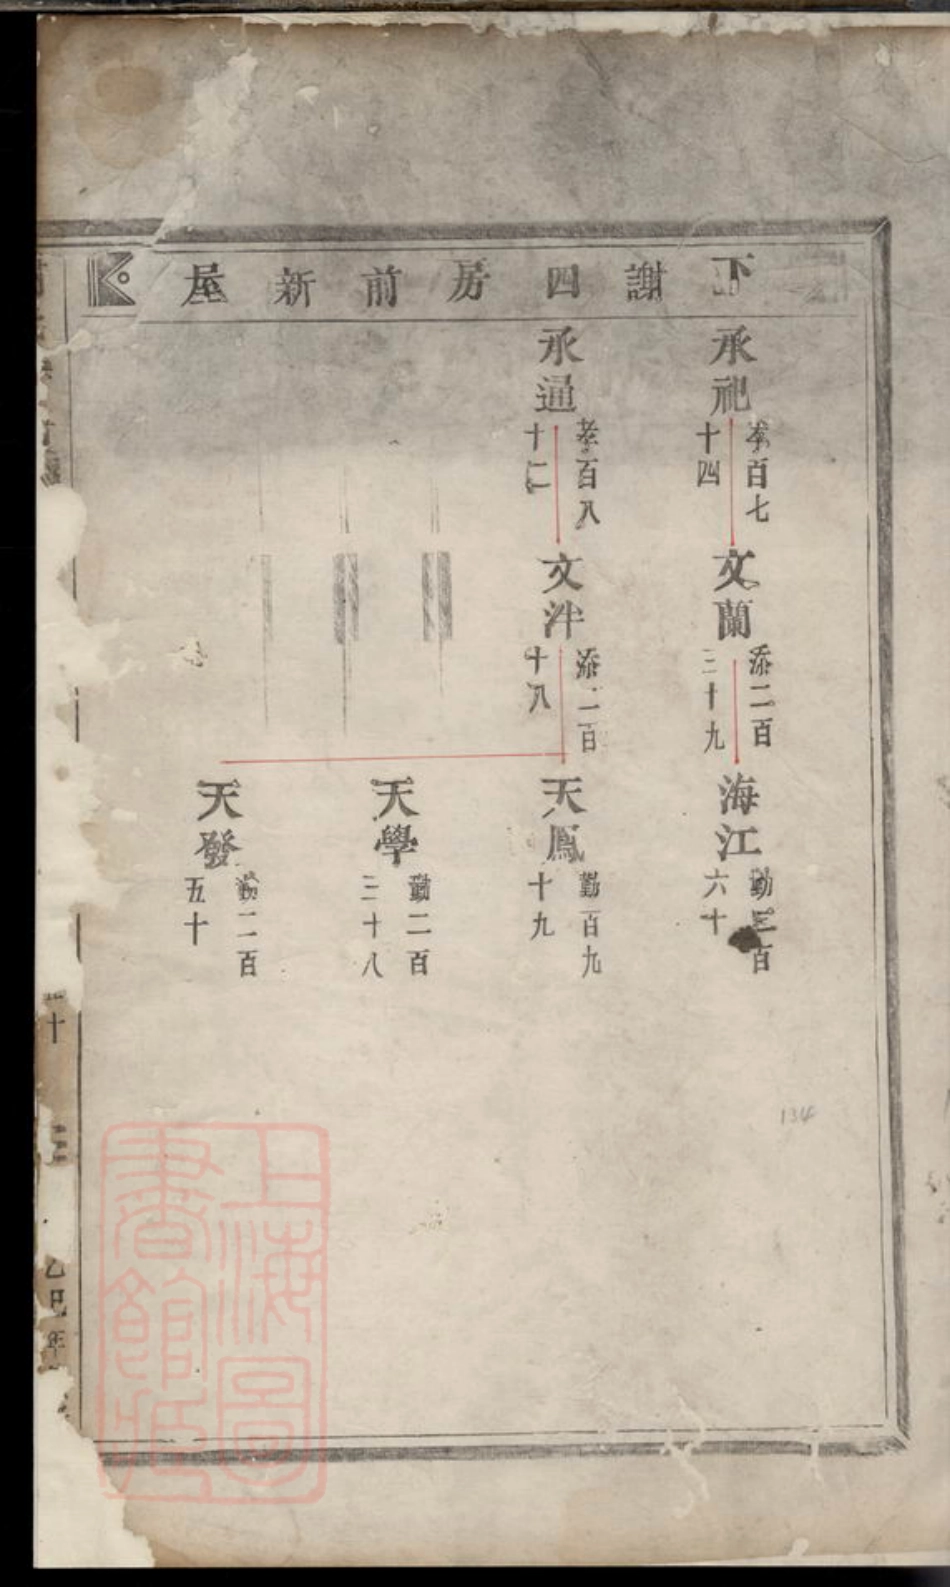 下謝四房前新屋
承祀
孝百七
十四
文蘭
添二百
三十九
海江
勤三百
六十
承通
孝百八
十二
文泮
添二百
十八
天鳳
勤百九
十九
天學
勤二百
三十八
天發
勤二百
五十
十
三
乙巳年
上海圖
書館藏
134